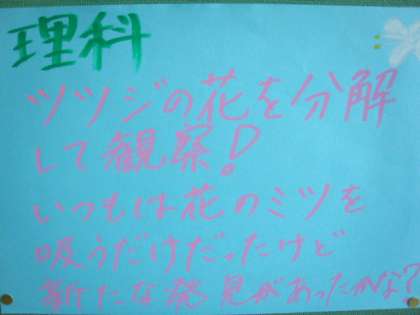 理科
ツツジの花を分解
して観察！
いつもは花のミツを
吸うだけだったけど
新たな発見があったかな？